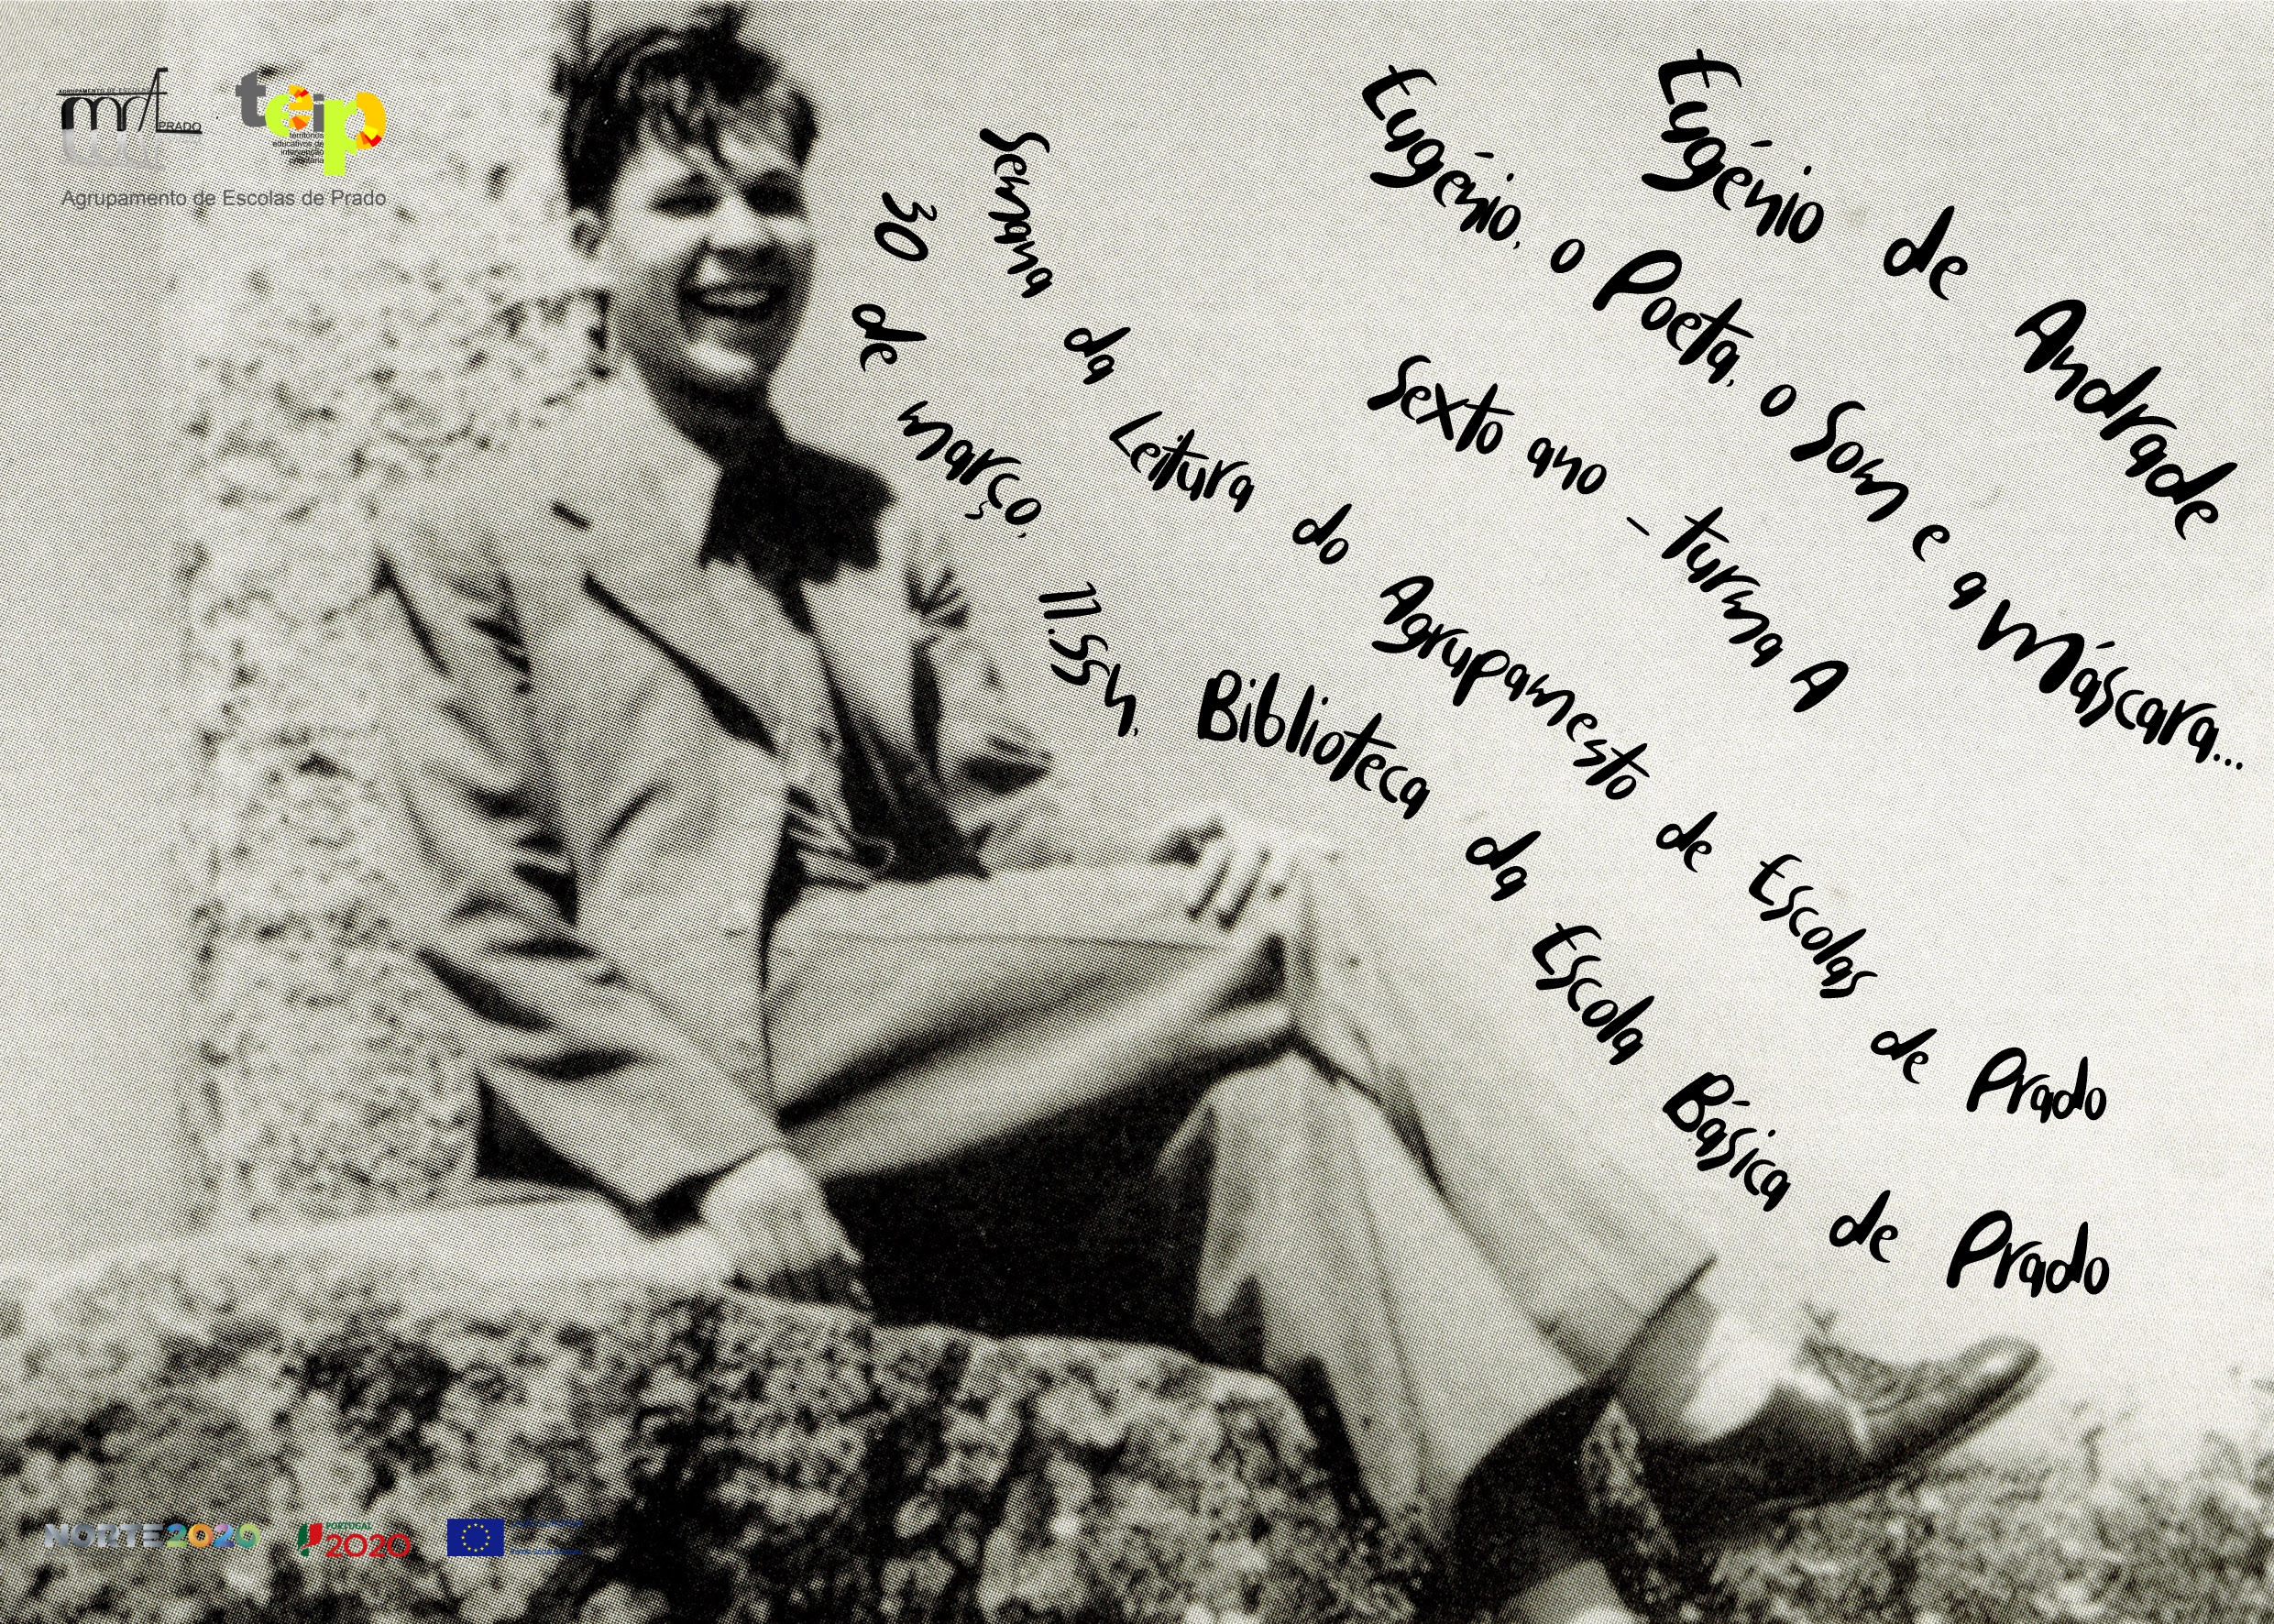 AGRUPAMENTO DE ESCOLAS
PRADO
teip
territórios
educativos de
intervenção
prioritária
Agrupamento de Escolas de Prado
Eugénio de Andrade
Eugénio, o Poeta, o Som e a Máscara...
Sexto ano - turma A
Semana da Leitura do Agrupamesto de Escolas de Prado
30 de março, 11.55h, Biblioteca da Escola Básica de Prado
NORTE2020
PORTUGAL
2020